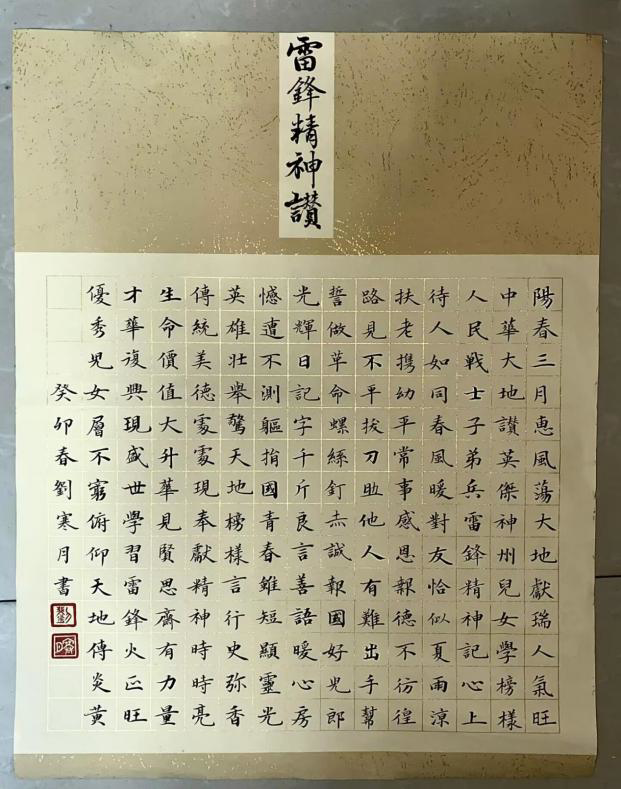 雷鋒精神讚
陽春三月惠風蕩大地獻瑞人氣旺
中華大地讚英傑神州兒女學榜樣
人民戰士子弟兵雷鋒精神記心上
待人如同春風暖對友恰似夏雨涼
扶老携幼平常事感恩報德不彷徨
路見不平拔刀助他人有難出手幫
誓做革命螺絲釘赤誠報國好兒郎
光輝日記字千斤良言善語暖心房
憾遭不測軀捐國青春雖短顯靈光
英雄壯舉驚天地榜樣言行史弥香
傳統美德處處現奉獻精神時時亮
生命價值大升華見賢思齋有力量
才華復興現盛世學習雷鋒火正旺
優秀兒女層不窮俯仰天地傳炎黃
癸卯春劉寒月書
劉